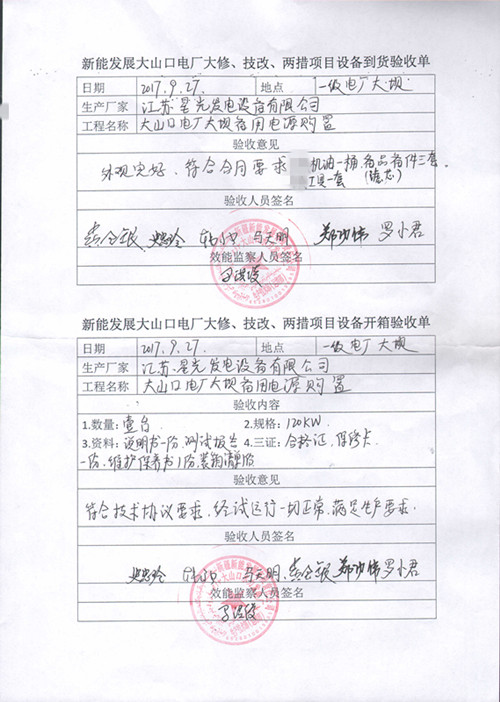 新能发展大山口电厂大修、技改、两措项目设备到货验收单
日期 2017.9.27. 地点 一级电厂大坝
生产厂家 江苏星光发电设备有限公司
工程名称 大山口电厂大坝备用电源购置
验收意见
外观完好、符合合同要求 机油一桶.备品备件三套.
工具一套 (滤芯)
验收人员签名
马天明 罗小君
效能监察人员签名
新能发展大山口电厂大修、技改、两措项目设备开箱验收单
日期 2017.9.27. 地点 一级电厂大坝
生产厂家 江苏.星光发电设备有限公司
工程名称 大山口电厂大坝备用电源购置
验收内容
1.数量: 壹台 2.规格: 120KW
3.资料: 说明书一份、测试报告 4.三证: 合格证、保修卡
一份、维护保养书1份、装箱清单1份
验收意见
符合技术协议要求、经试运行一切正常、满足生产要求.
验收人员签名
马天明、 罗小君
效能监察人员签名